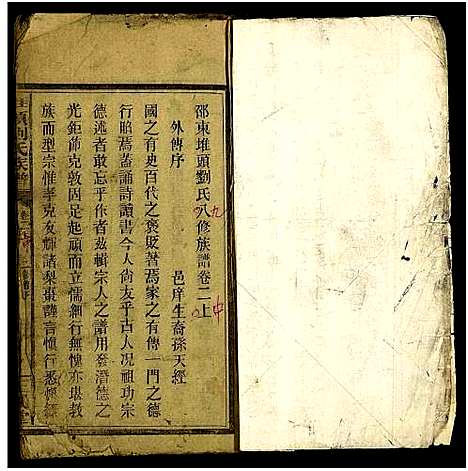 邵東堆頭劉氏八修族譜卷二上
九
中
外傳序
邑庠生裔孫天經
國之有史百代之褒貶著焉家之有傳一門之德
行昭焉蓋誦詩讀書今人尚友乎古人况祖功宗
德述者敢忘乎作者玆輯宗人之譜用發潛德之
光鉅篩克敦固足起頑而立懦細行無愧亦堪教
族而型宗惟孝克友輝諸梨棗謹言慎行悉
頭劉氏族譜